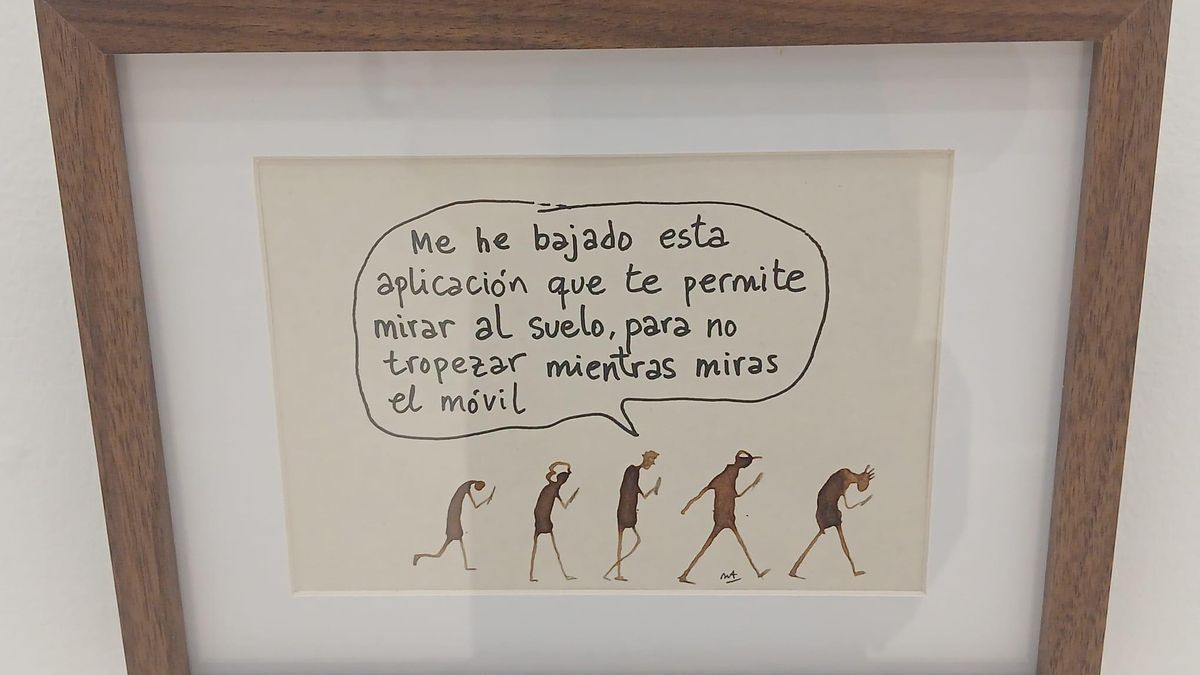 Me he bajado esta
aplicación que te permite
mirar al suelo, para no
tropezar mientras miras
el móvil